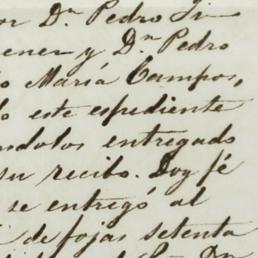 or Dn Pedro Ji
ener y Dn Pedro
o María Campos,
do este espediente
ándolos entregado
su recibo. Doy fé
se entregó al
de fojas setenta